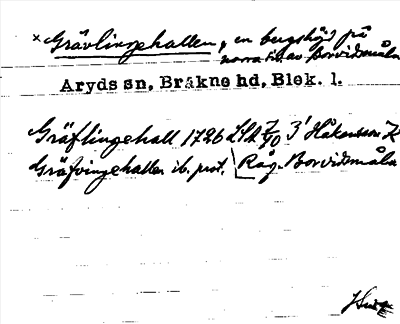 × Grävlingehallen, en bergshöjd på
norra t. av Borvidsmåla
Aryds sn, Bräkne hd, Blek. l.
Gräflingehall 1726 LSA 3' Håkansson K
Gräfvingehallen ib. prot. Råg. Borvidsmåla